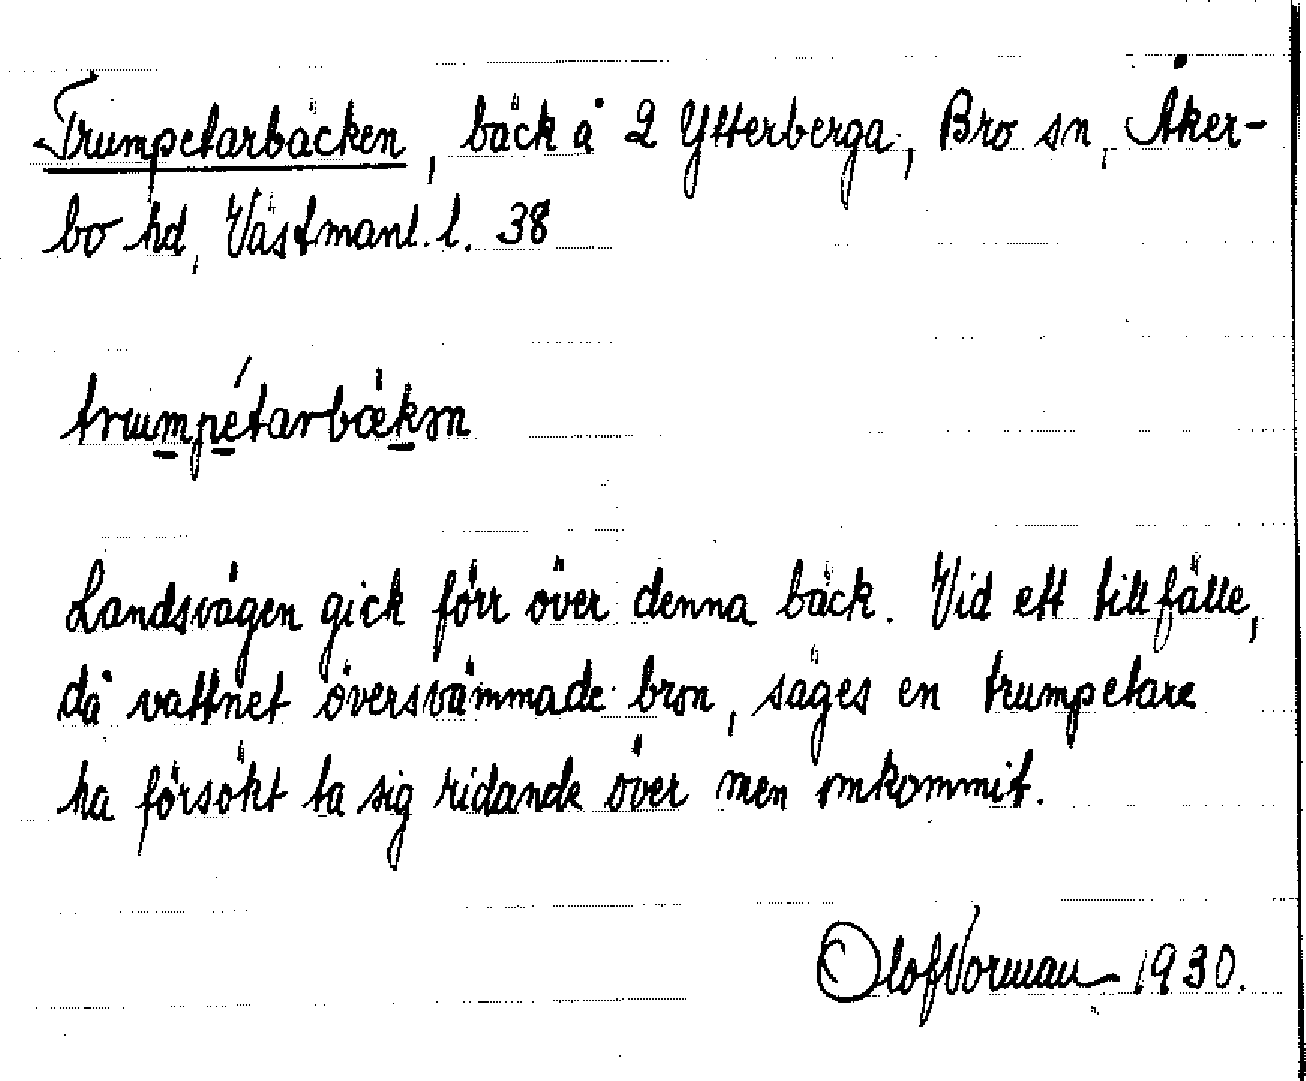 Trumpetarbäcken, bäck å 2 Ytterberga, Bro sn, Åker-
bo hd, Västmanl. l. 38
trumpétarbækən
Landsvägen gick förr över denna bäck. Vid ett tillfälle,
då vattnet översvämmade bron, säges en trumpetare
ha försökt ta sig ridande över men omkommit.
Olof Norman 1930.